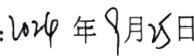 :2024年9月25日